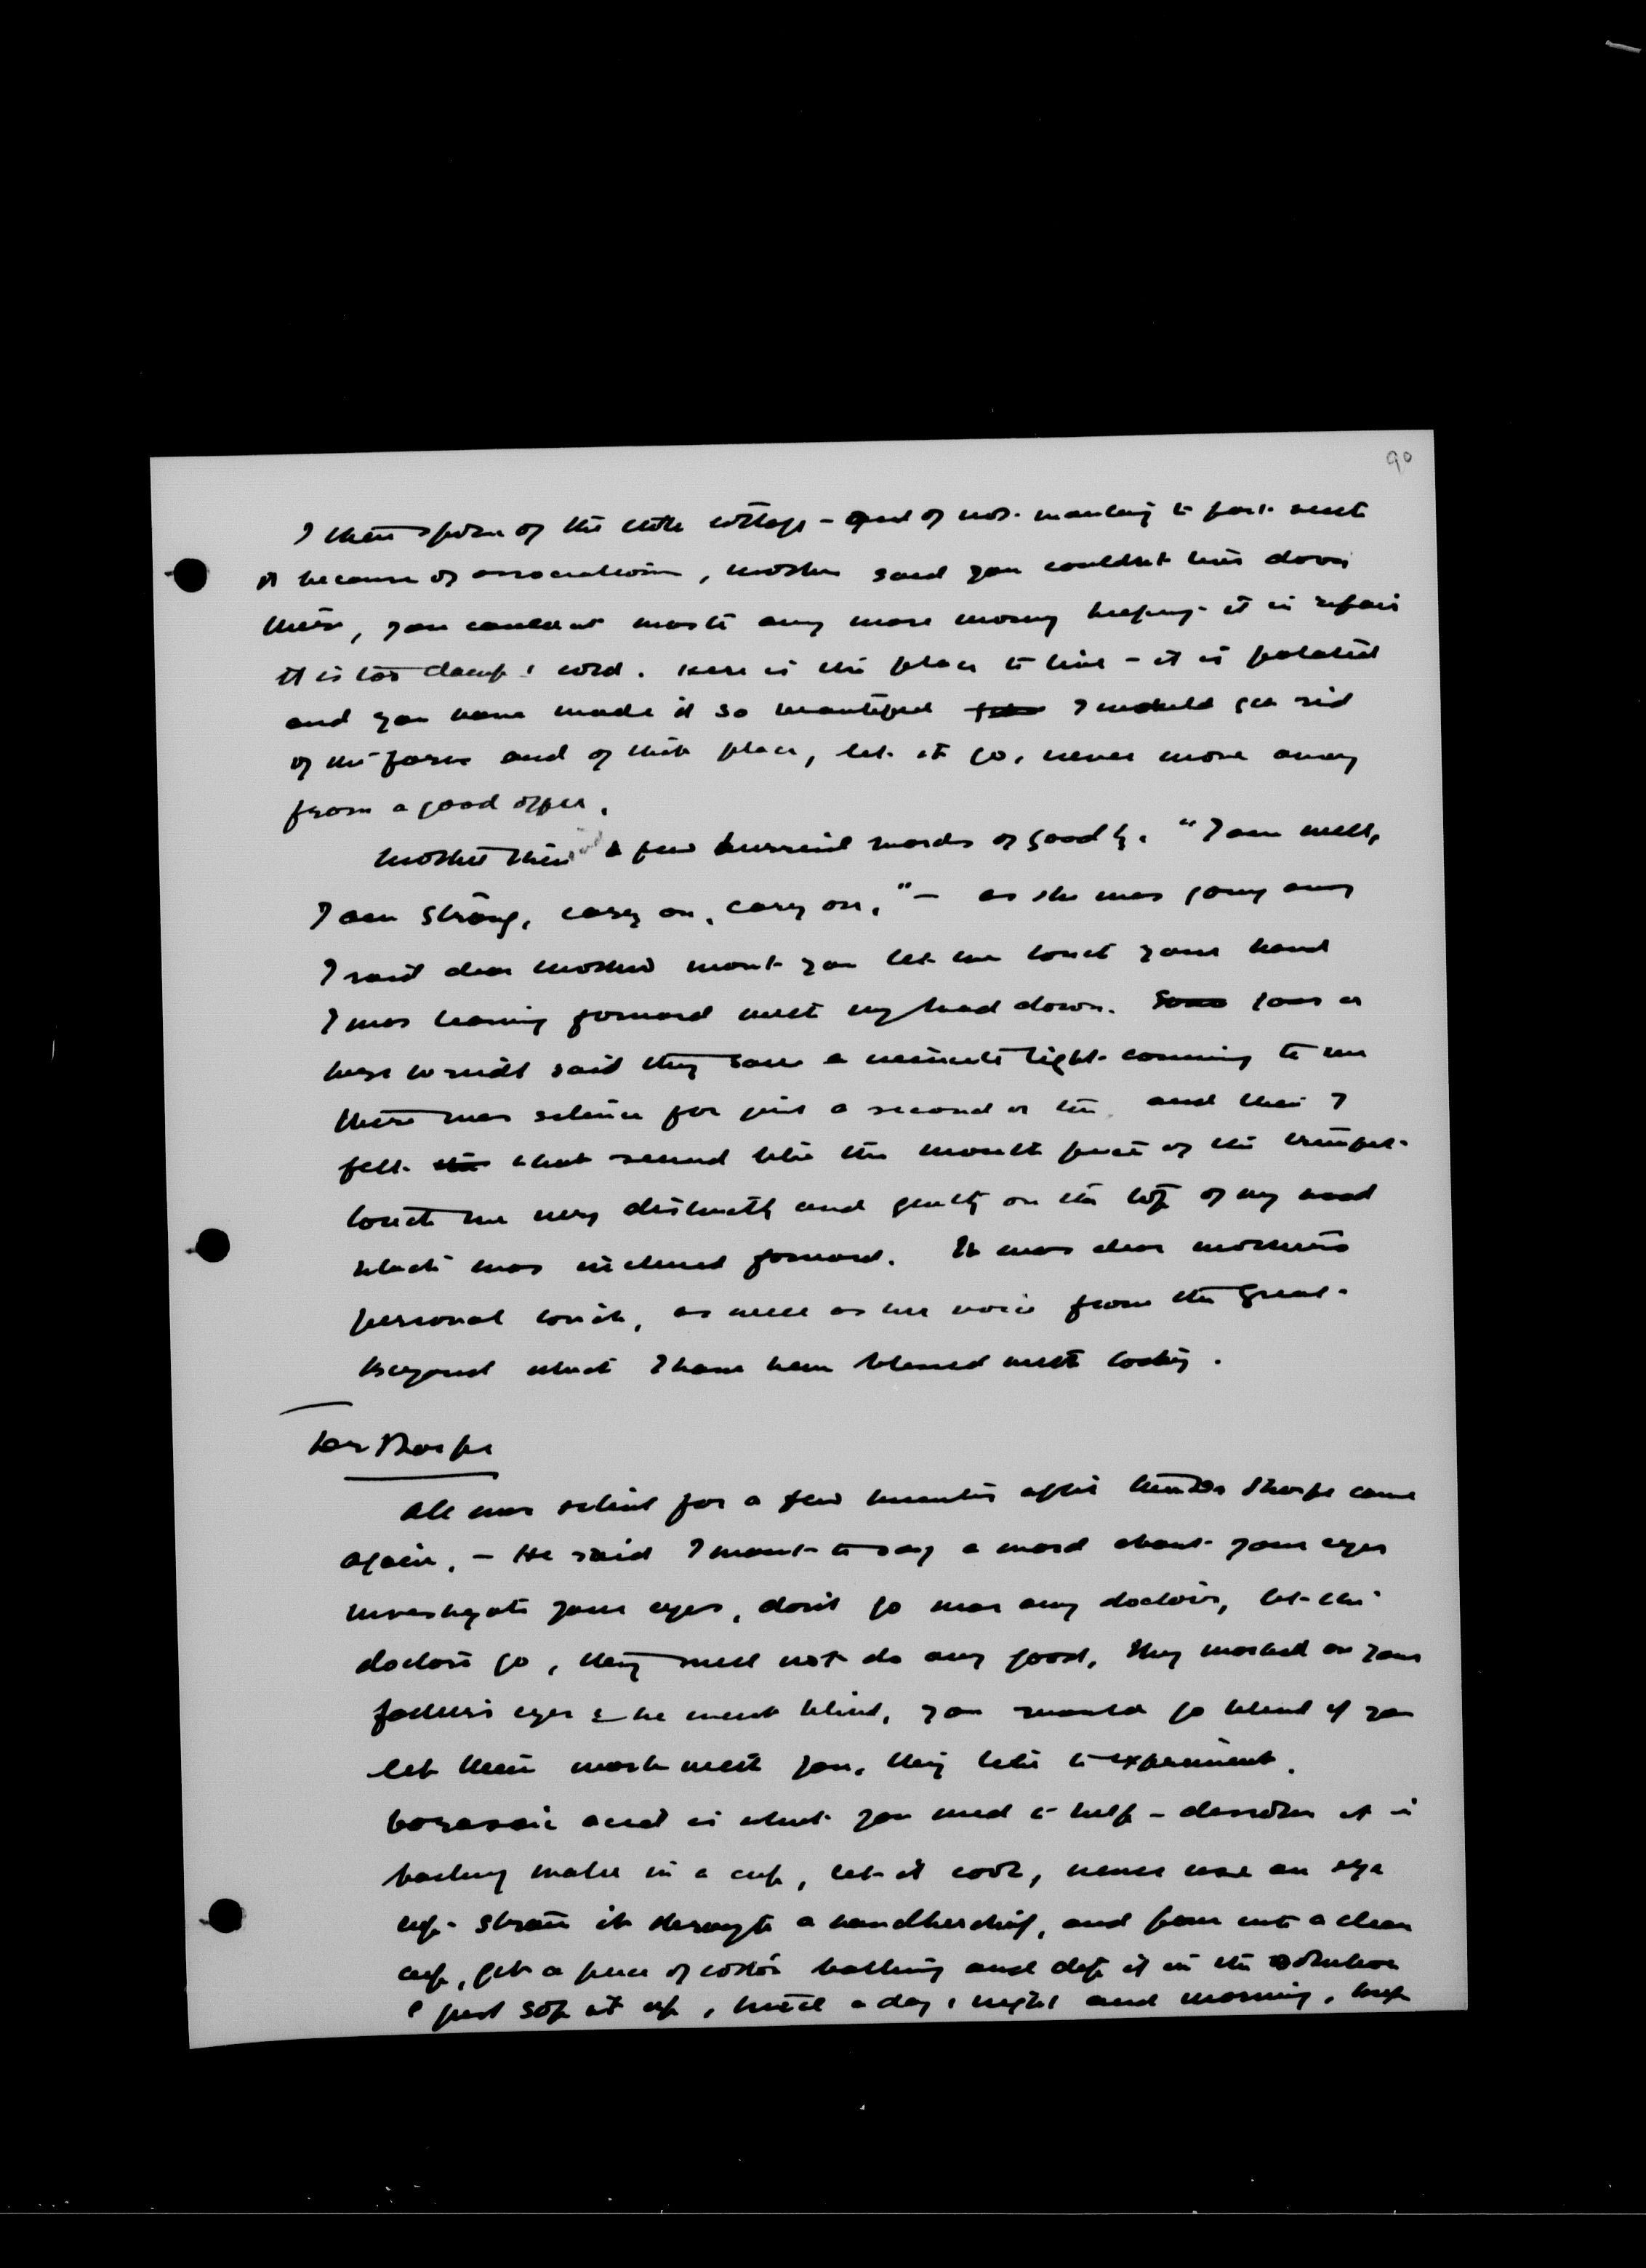 90
I then spoke of the little cottage - and of not wanting to part with
it because of associations, mother said you couldnt live down
there, you couldnt waste any more money keeping it in repair
It is too damp & cold. Here is the place to live - it is
and you have made it so beautiful I would get rid
of the farm and of that place, let it go, never move away
from a good offer.
Mother then a few hurried words of goodby. "I am well,
I am strong, carry on, carry on," - as she was going away
I said dear mother wont you let me touch your hand
I was leaning forward with my head down. said they saw a minute light coming to me
there was silence for just a second or two and then I
felt what seemed like the mouth piece of the trumpet
touch me very distinctly and gently on the top of my head
which was inclined forward. It was dear mothers
personal touch, as well as her voice from the Great
Beyond which I have been blessed with today.
Dr Thorpe
All was silent for a few minutes after then Dr Thorpe came
again. - He said I want to say a word about your eyes
Investigate your eyes, don't go near any doctors, let the
doctors go, they will not do any good, they worked on your
father's eyes & he went blind, you would go blind if you
let them work with you, they like to experiment.
boracaic acid is what you need to help - dissolve it in
boiling water in a cup, let it cool, never use an eye
cup - strain it through a handkerchief, and pour into a clean
cup, get a piece of cotton batting and dip it in the solution
& just sop it up, twice a day, night and morning, keep